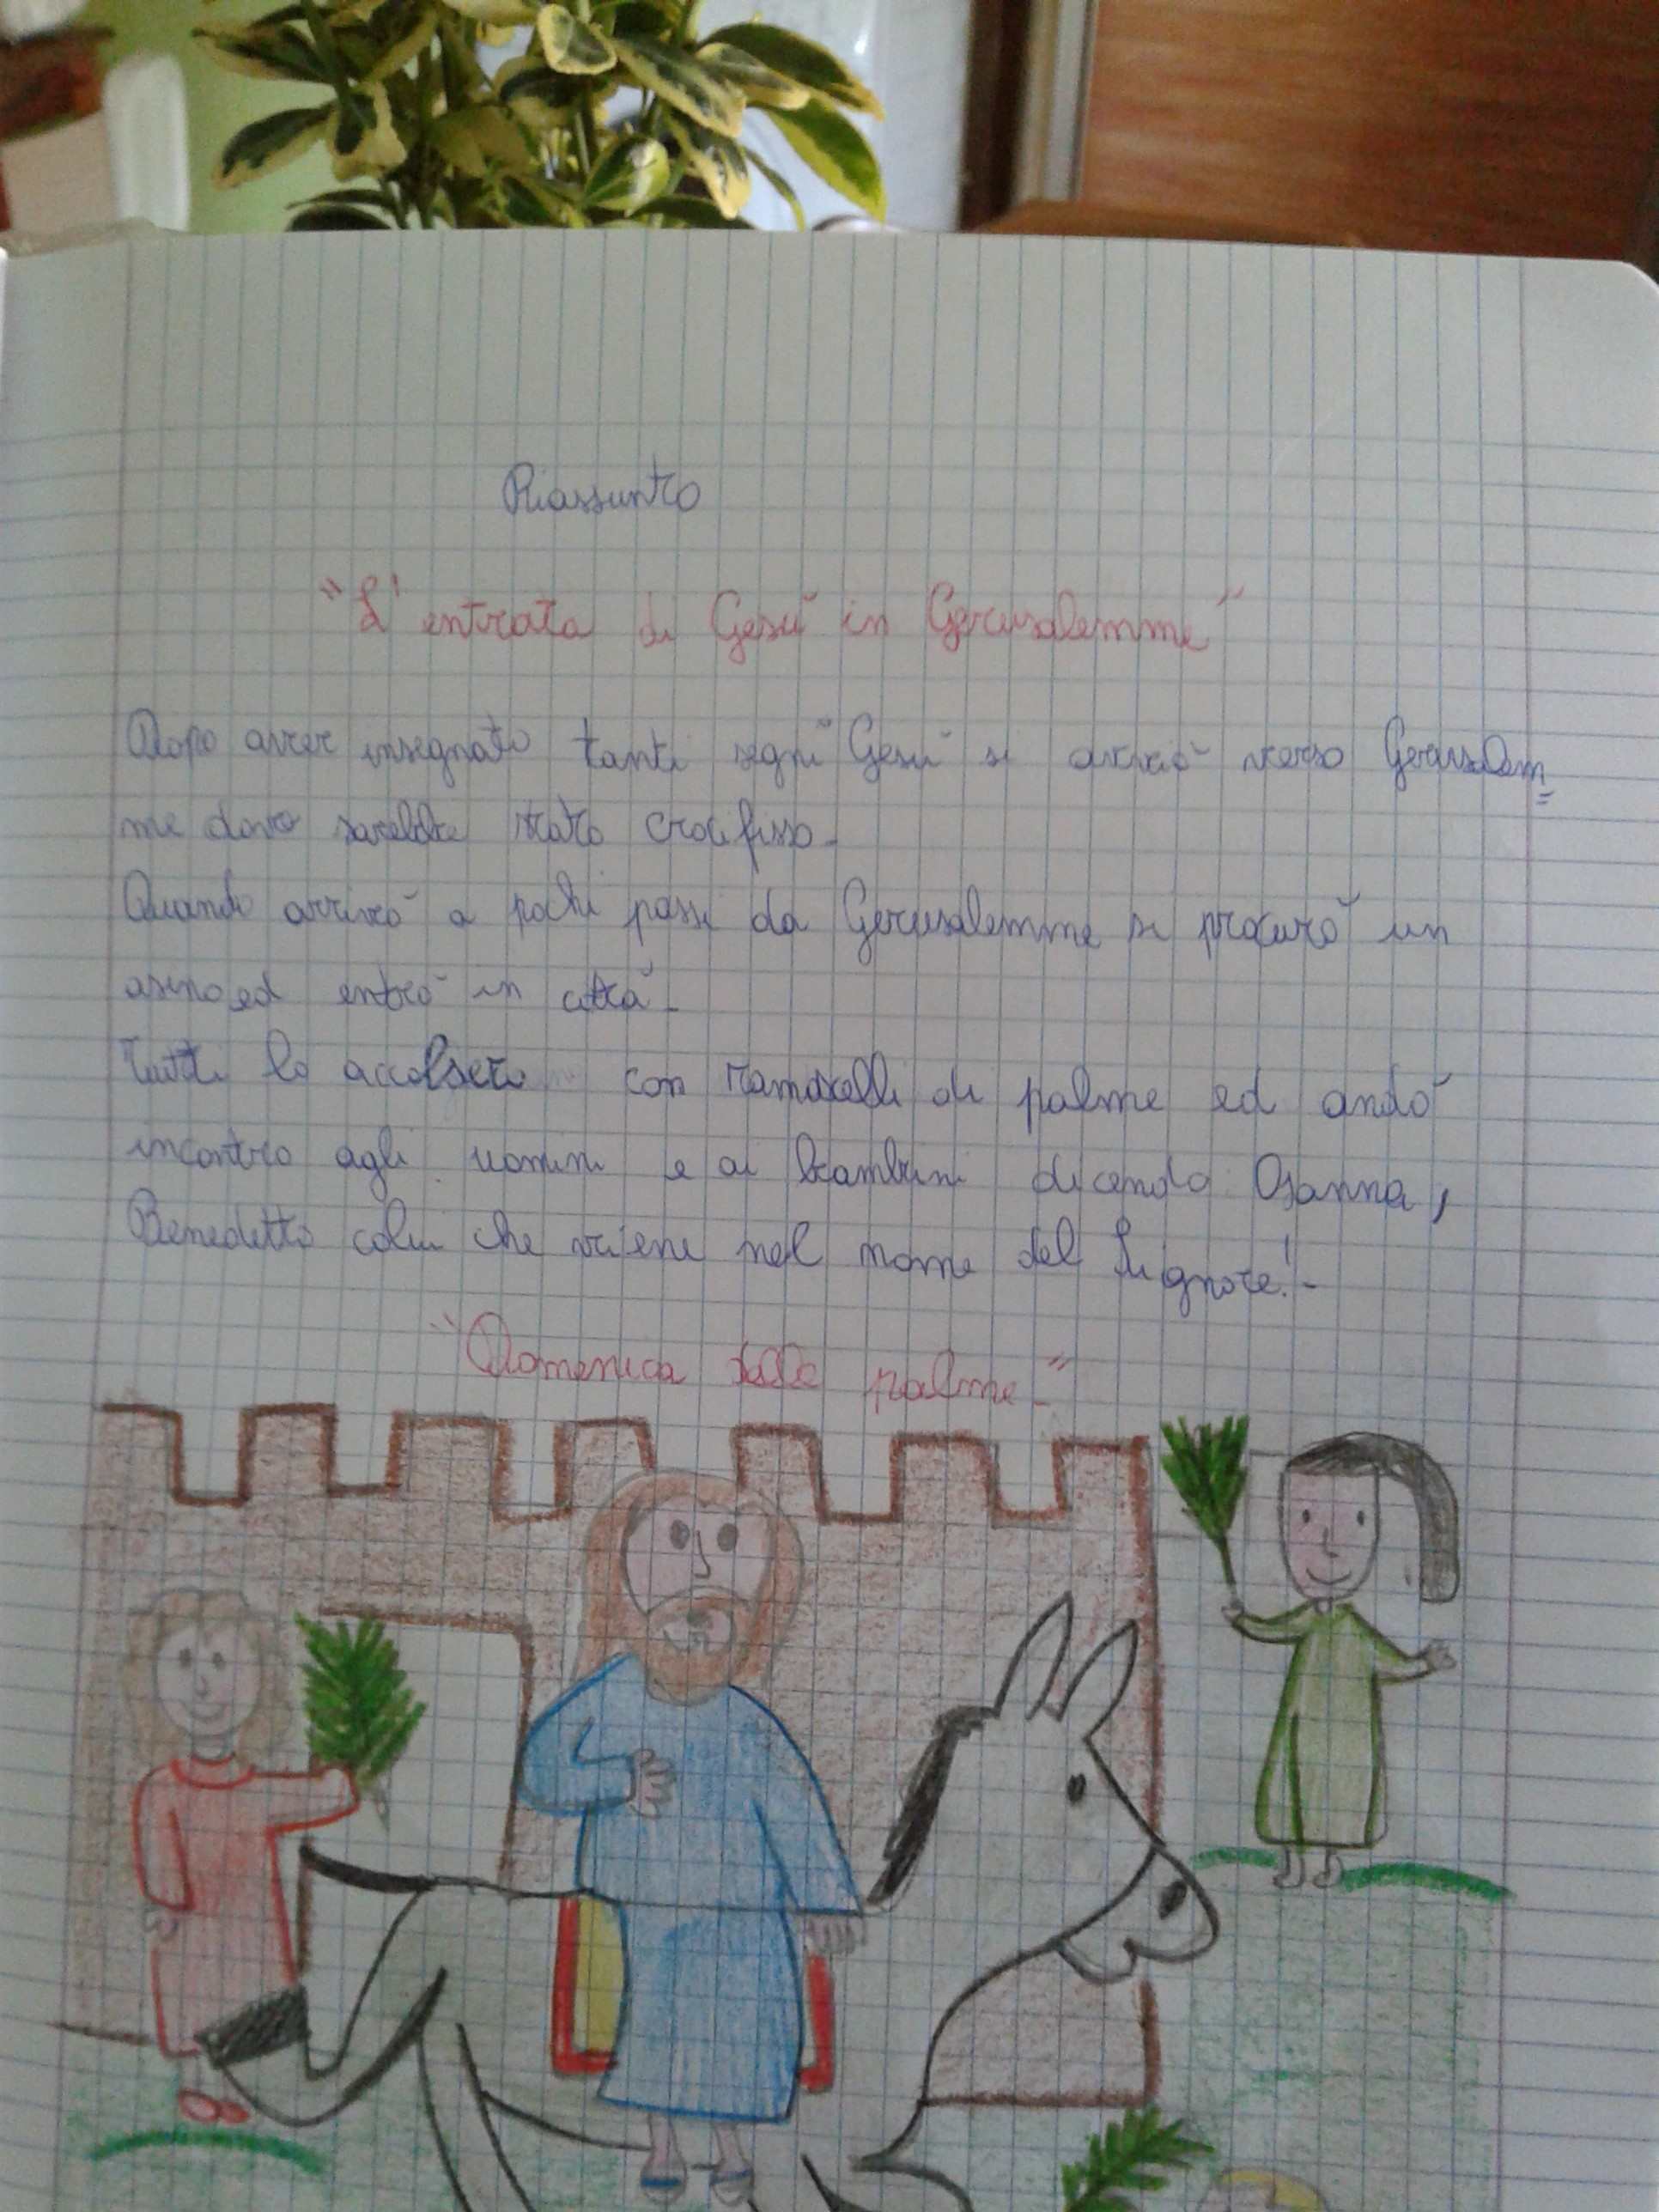 Riassunto
"L'entrata di Gesù in Gerusalemme"
Dopo aver insegnato tanti segni Gesù si avviò verso Gerusalem=
me dove sarebbe stato crocifisso.
Quando arrivò a pochi passi da Gerusalemme si procurò un
asino ed entrò in città.
Tutti lo accolsero con ramoscelli di palme ed andò
incontro agli uomini e ai bambini dicendo Osanna,
Benedetto colui che viene nel nome del Signore!.
"Domenica delle palme."